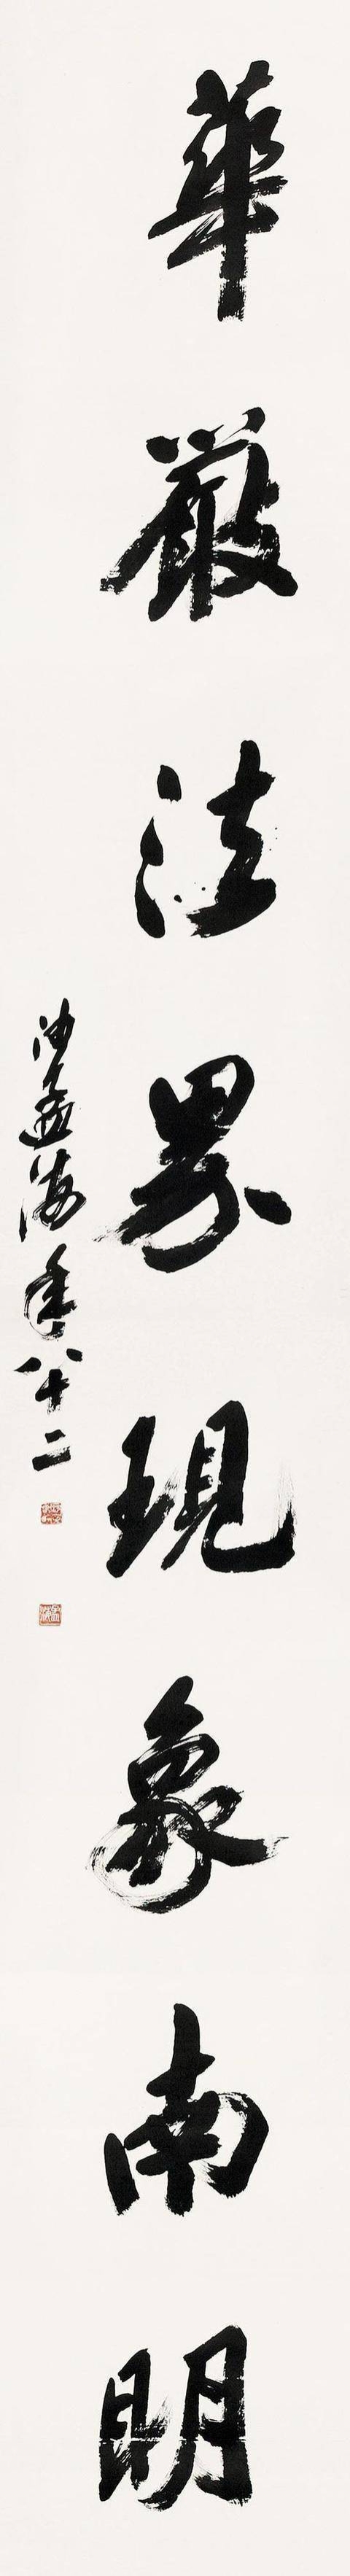 華嚴法界現象南明
沙孟海年八十二